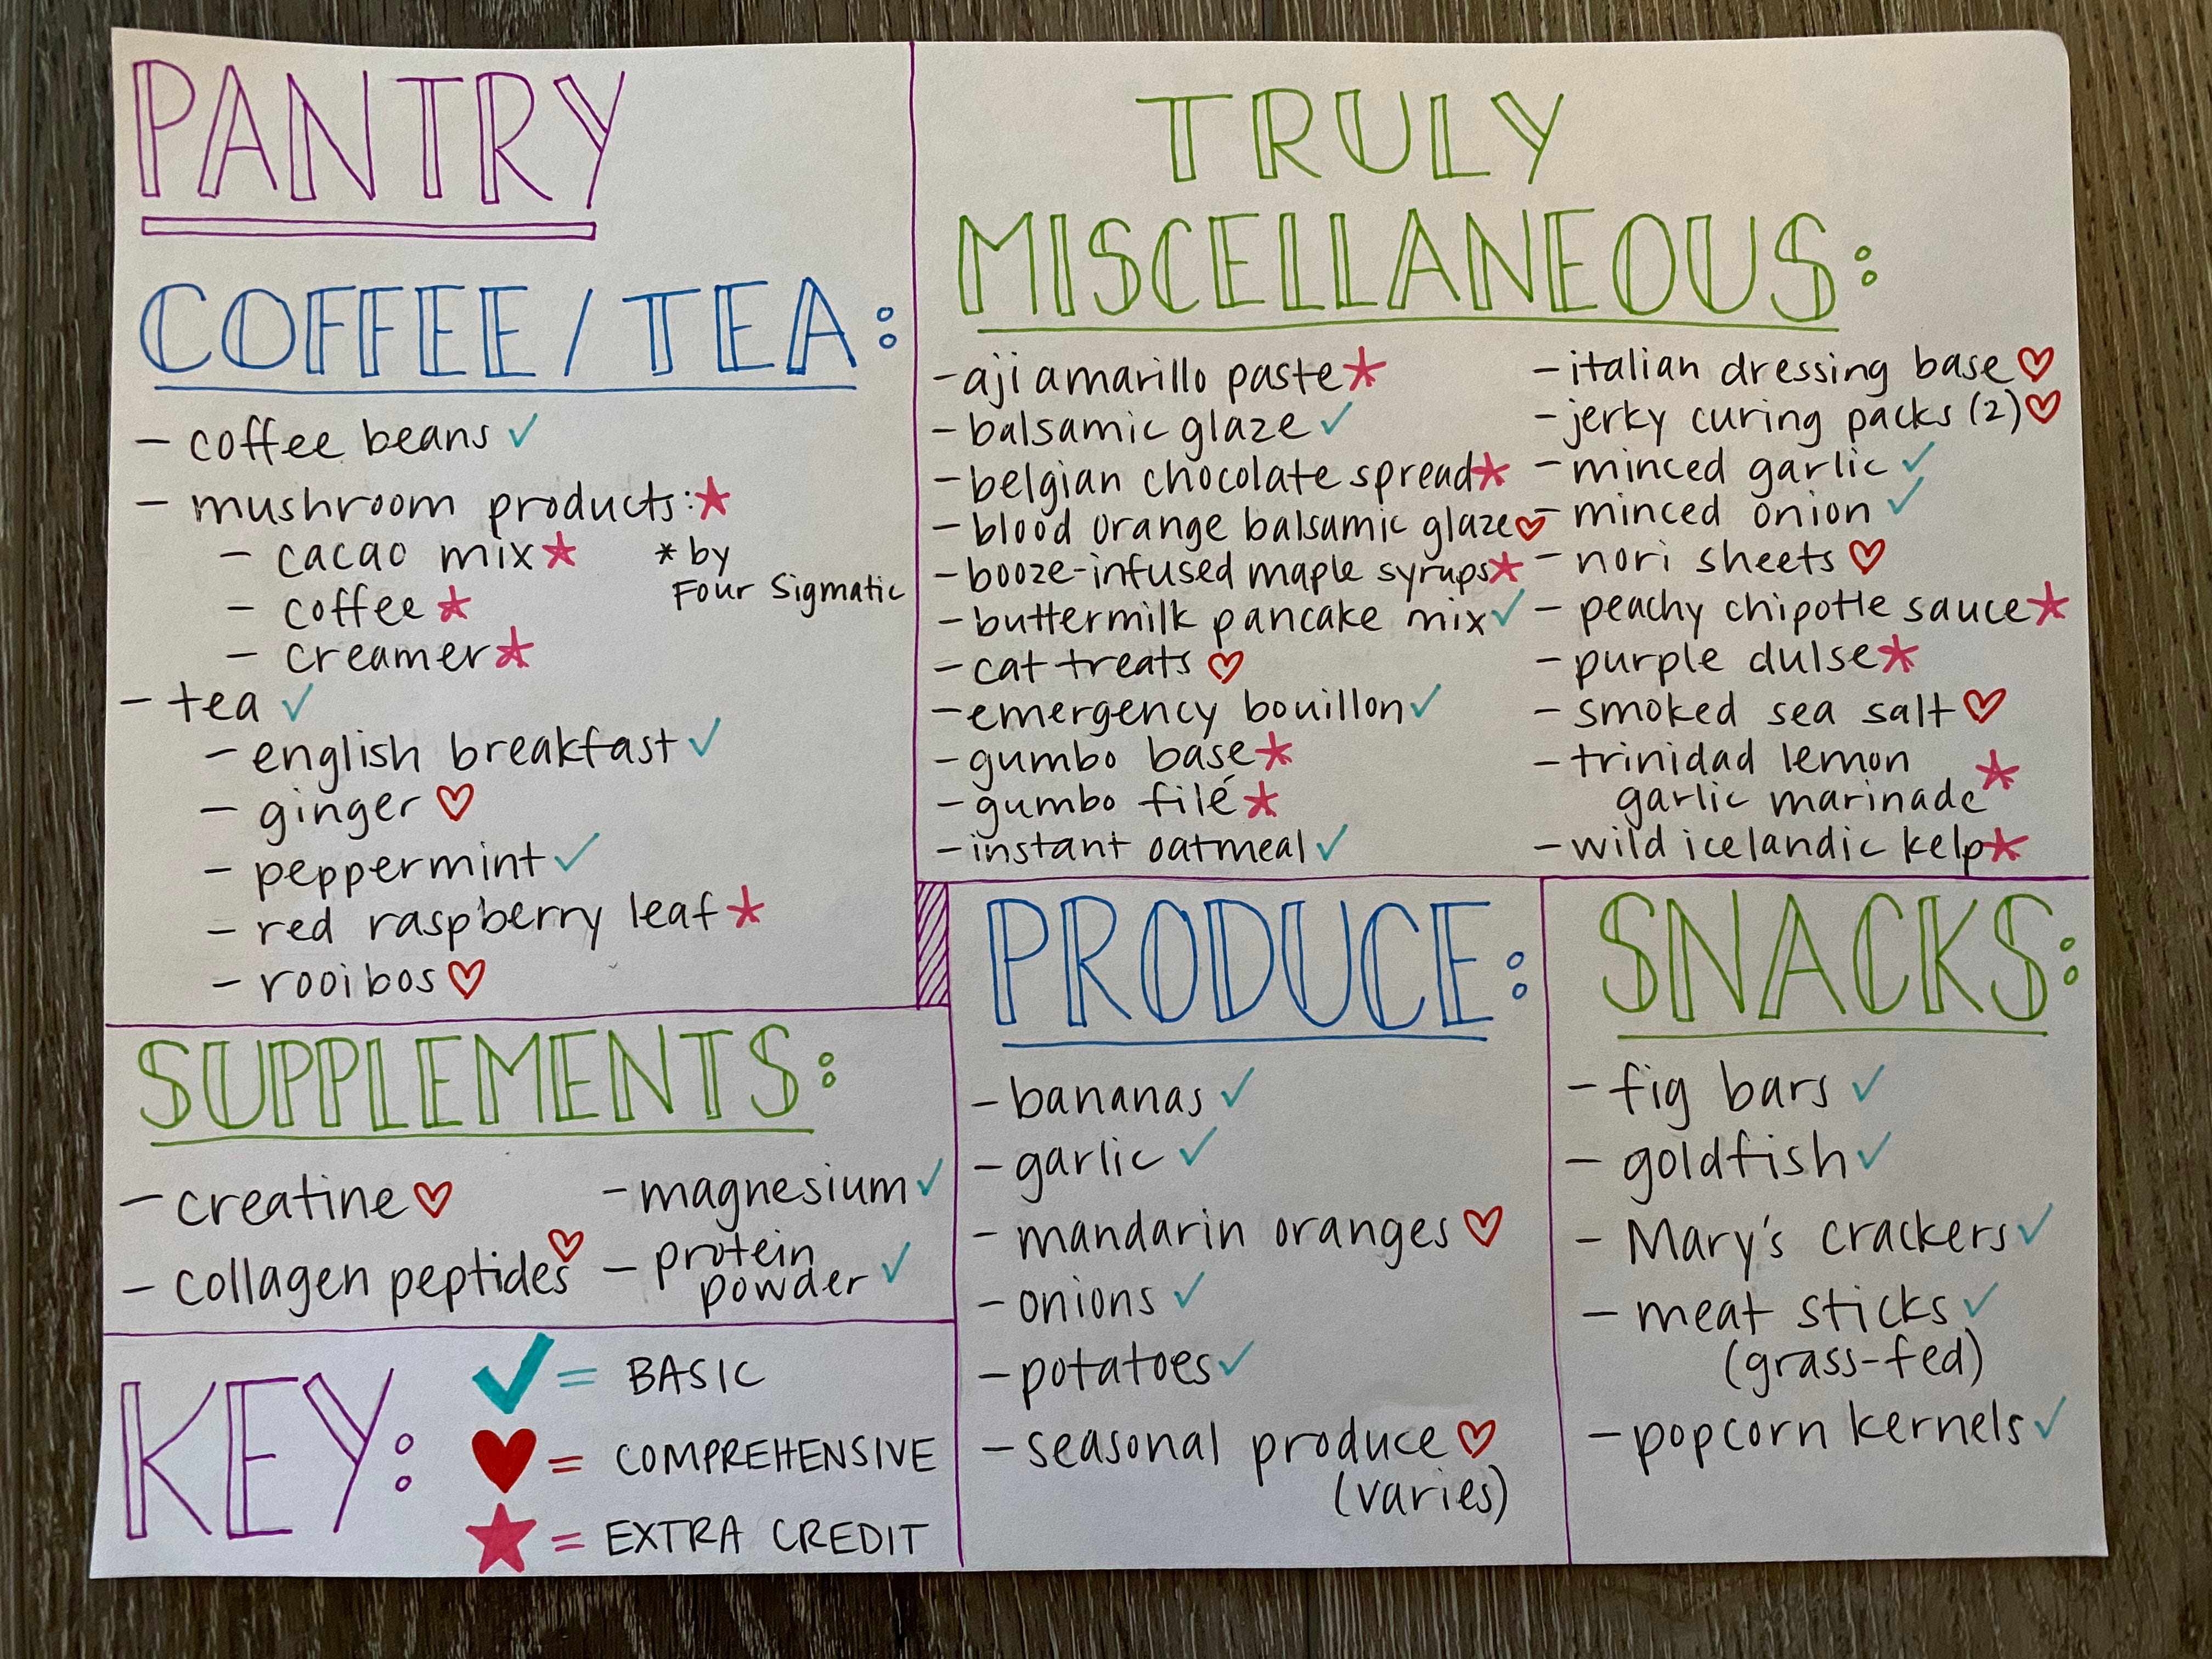 PANTRY
COFFEE/TEA:
- coffee beans ✓
- mushroom products: ★
- cacao mix ★
* by
Four Sigmatic
- coffee ★
- creamer ★
- tea ✓
- english breakfast ✓
- ginger ♡
- peppermint ✓
- red raspberry leaf ★
- rooibos ♡
SUPPLEMENTS:
- creatine ♡
- collagen peptides ♡
- magnesium ✓
- protein
powder ✓
KEY:
✓ = BASIC
♥ = COMPREHENSIVE
★ = EXTRA CREDIT
TRULY
MISCELLANEOUS:
- aji amarillo paste ★
- balsamic glaze ✓
- belgian chocolate spread ★
- blood orange balsamic glaze ♡
- booze-infused maple syrups ★
- buttermilk pancake mix ✓
- cat treats ♡
- emergency bouillon ✓
- gumbo base ★
- gumbo filé ★
- instant oatmeal ✓
- italian dressing base ♡
- jerky curing packs (2) ♡
- minced garlic ✓
- minced onion ✓
- nori sheets ♡
- peachy chipotle sauce ★
- purple dulse ★
- smoked sea salt ♡
- trinidad lemon
garlic marinade ★
- wild icelandic kelp ★
PRODUCE:
- bananas ✓
- garlic ✓
- mandarin oranges ♡
- onions ✓
- potatoes ✓
- seasonal produce ♡
(varies)
SNACKS:
- fig bars ✓
- goldfish ✓
- Mary's crackers ✓
- meat sticks ✓
(grass-fed)
- popcorn kernels ✓